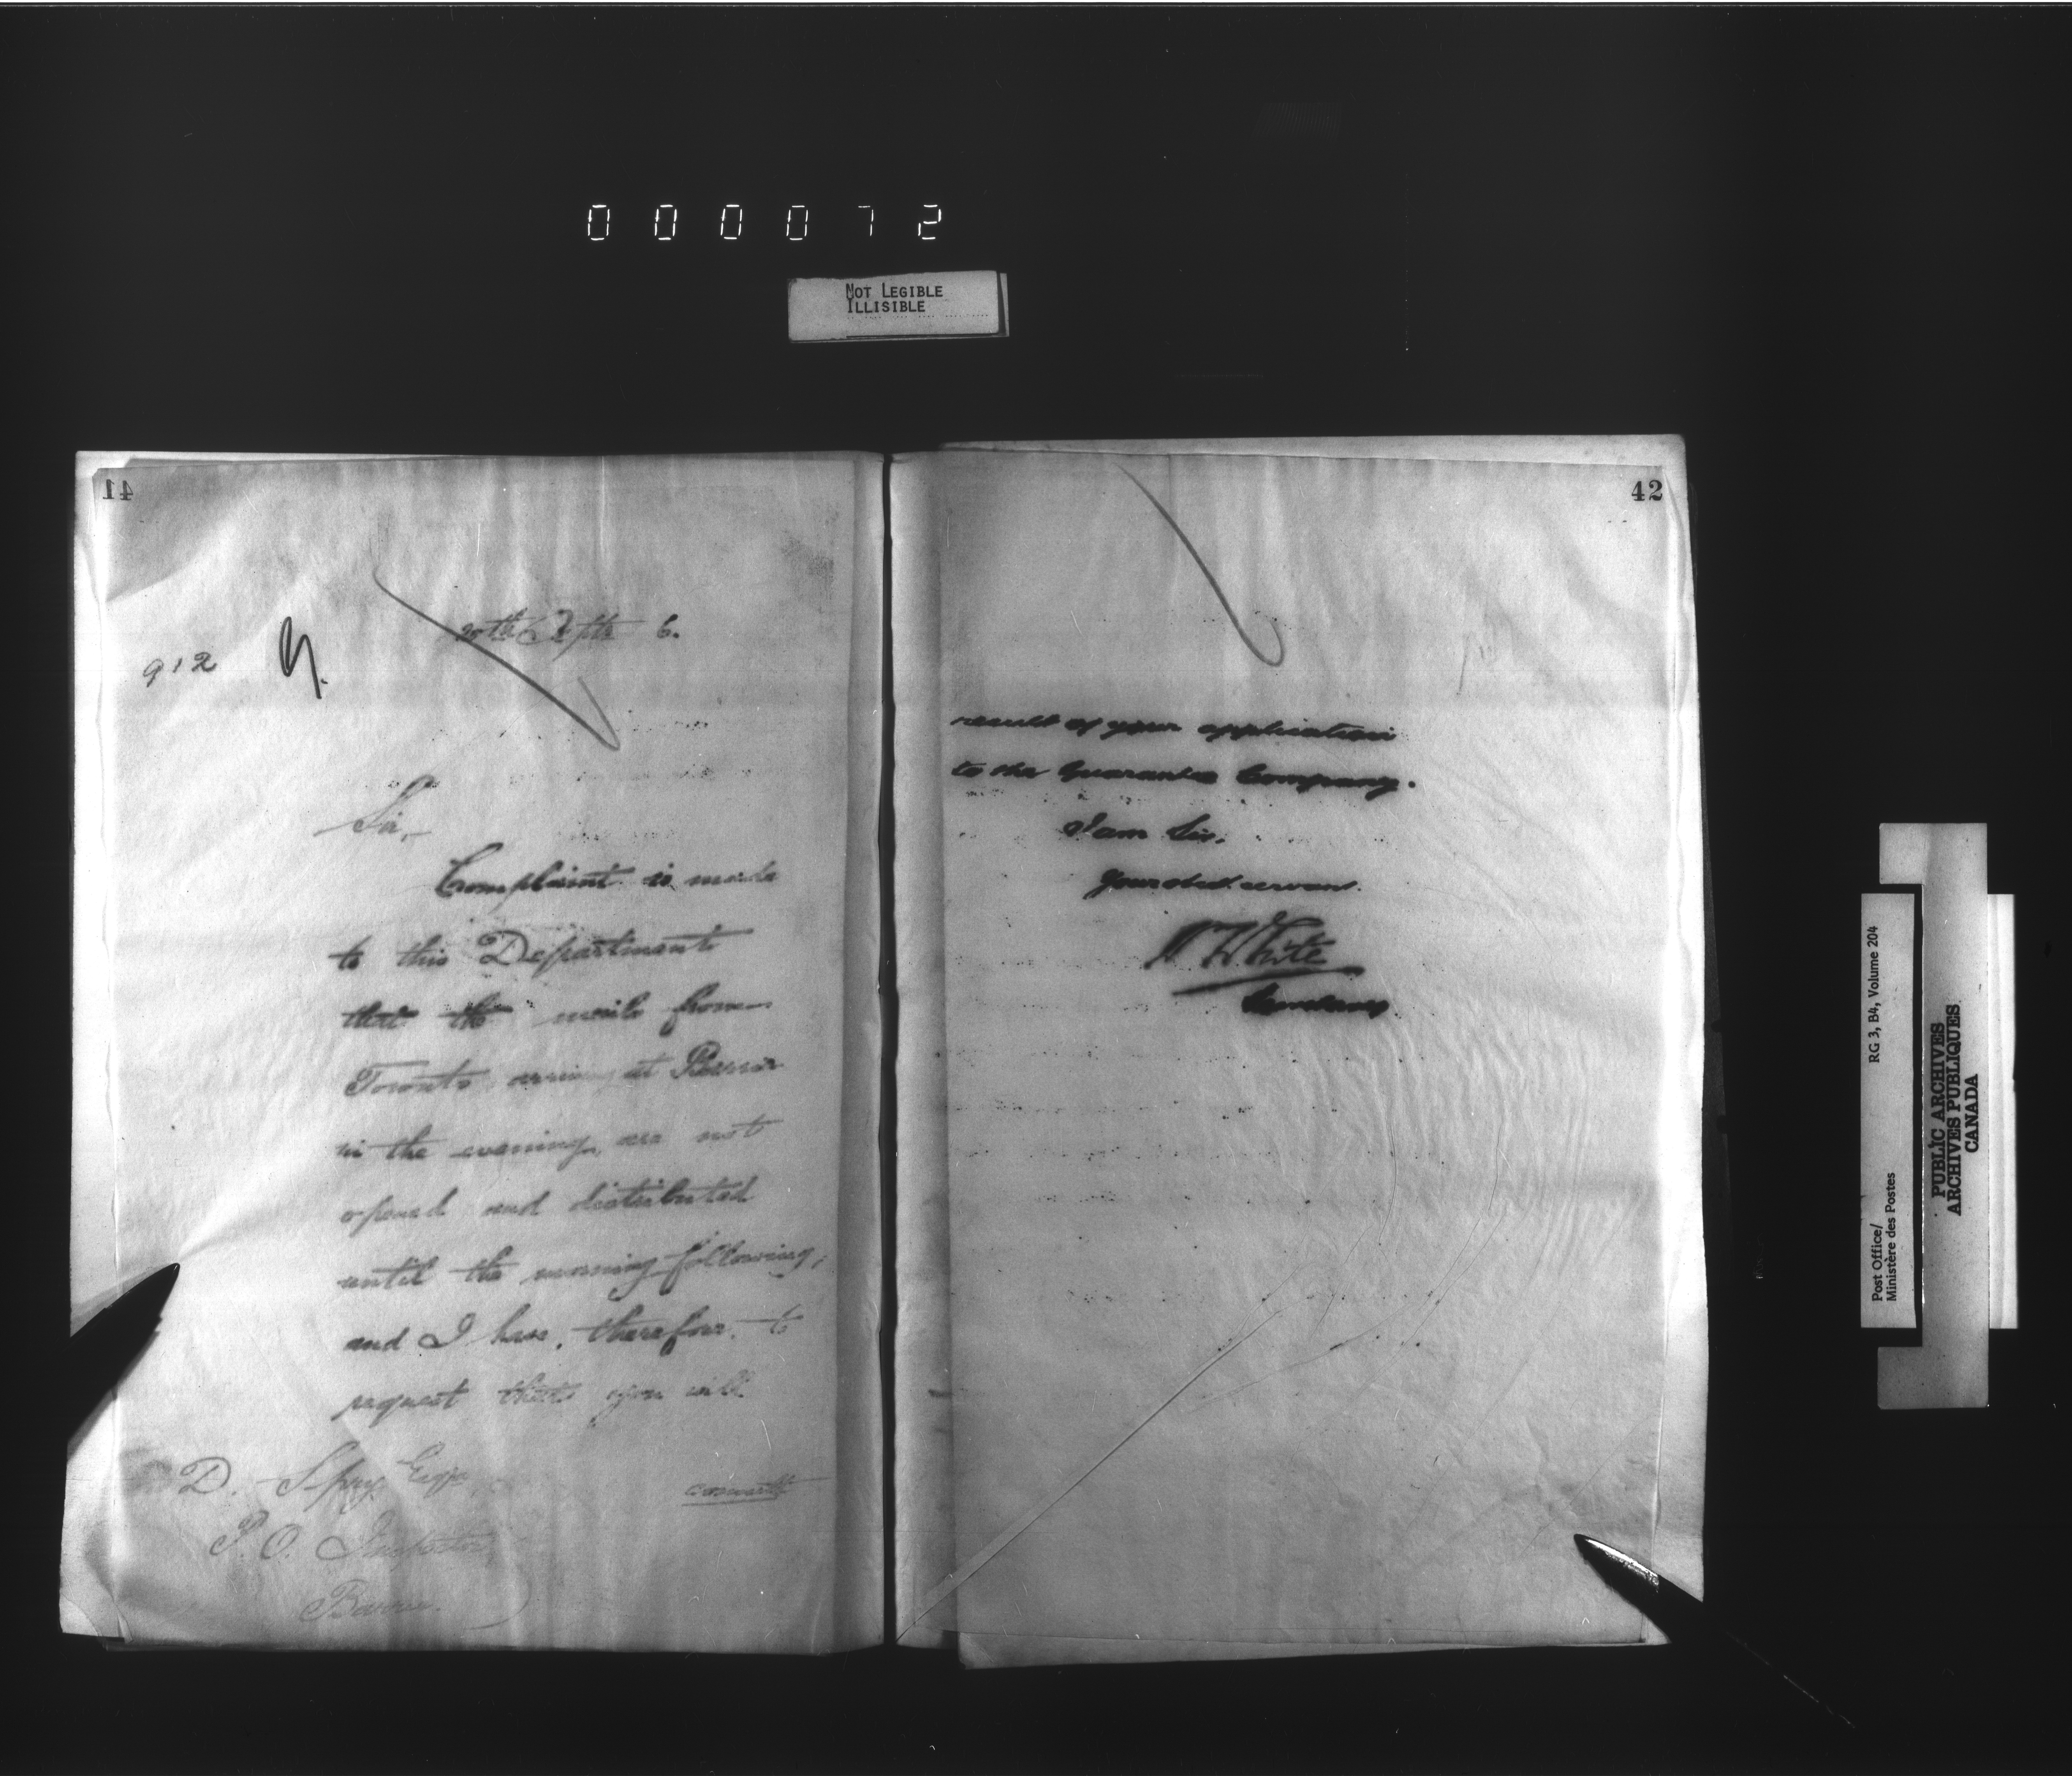 000072
NOT LEGIBLE
ILLISIBLE
41
20th Septr 6.
912
Sir,
Complaint is made
to this Department
that the mails from
Toronto arriving at
in the evening, are not
opened and distributed
until the morning following,
and I have, therefore, to
request that you will
D. Spry Esqr.
P.O. Inspector
Barrie.
42
result of your application
to the Guarantee Company.
I am Sir,
Your obed. servant.
W White
Secretary
RG 3, B4, Volume 204
Post Office/
Ministère des Postes
PUBLIC ARCHIVES
ARCHIVES PUBLIQUES
CANADA